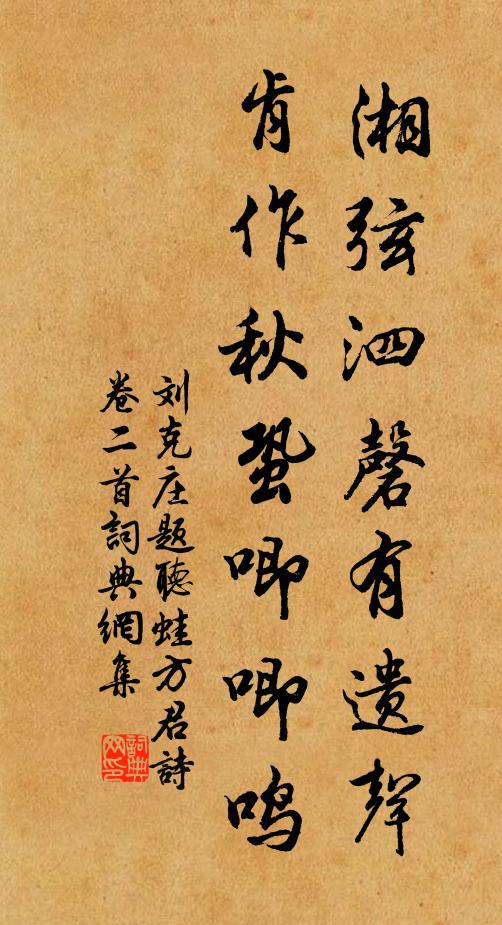 湘弦泗磬有遗聲
肯作秋蛩唧唧鸣
刘克庄题聽蛙方君詩
卷二首詞典網集
詞典
网印